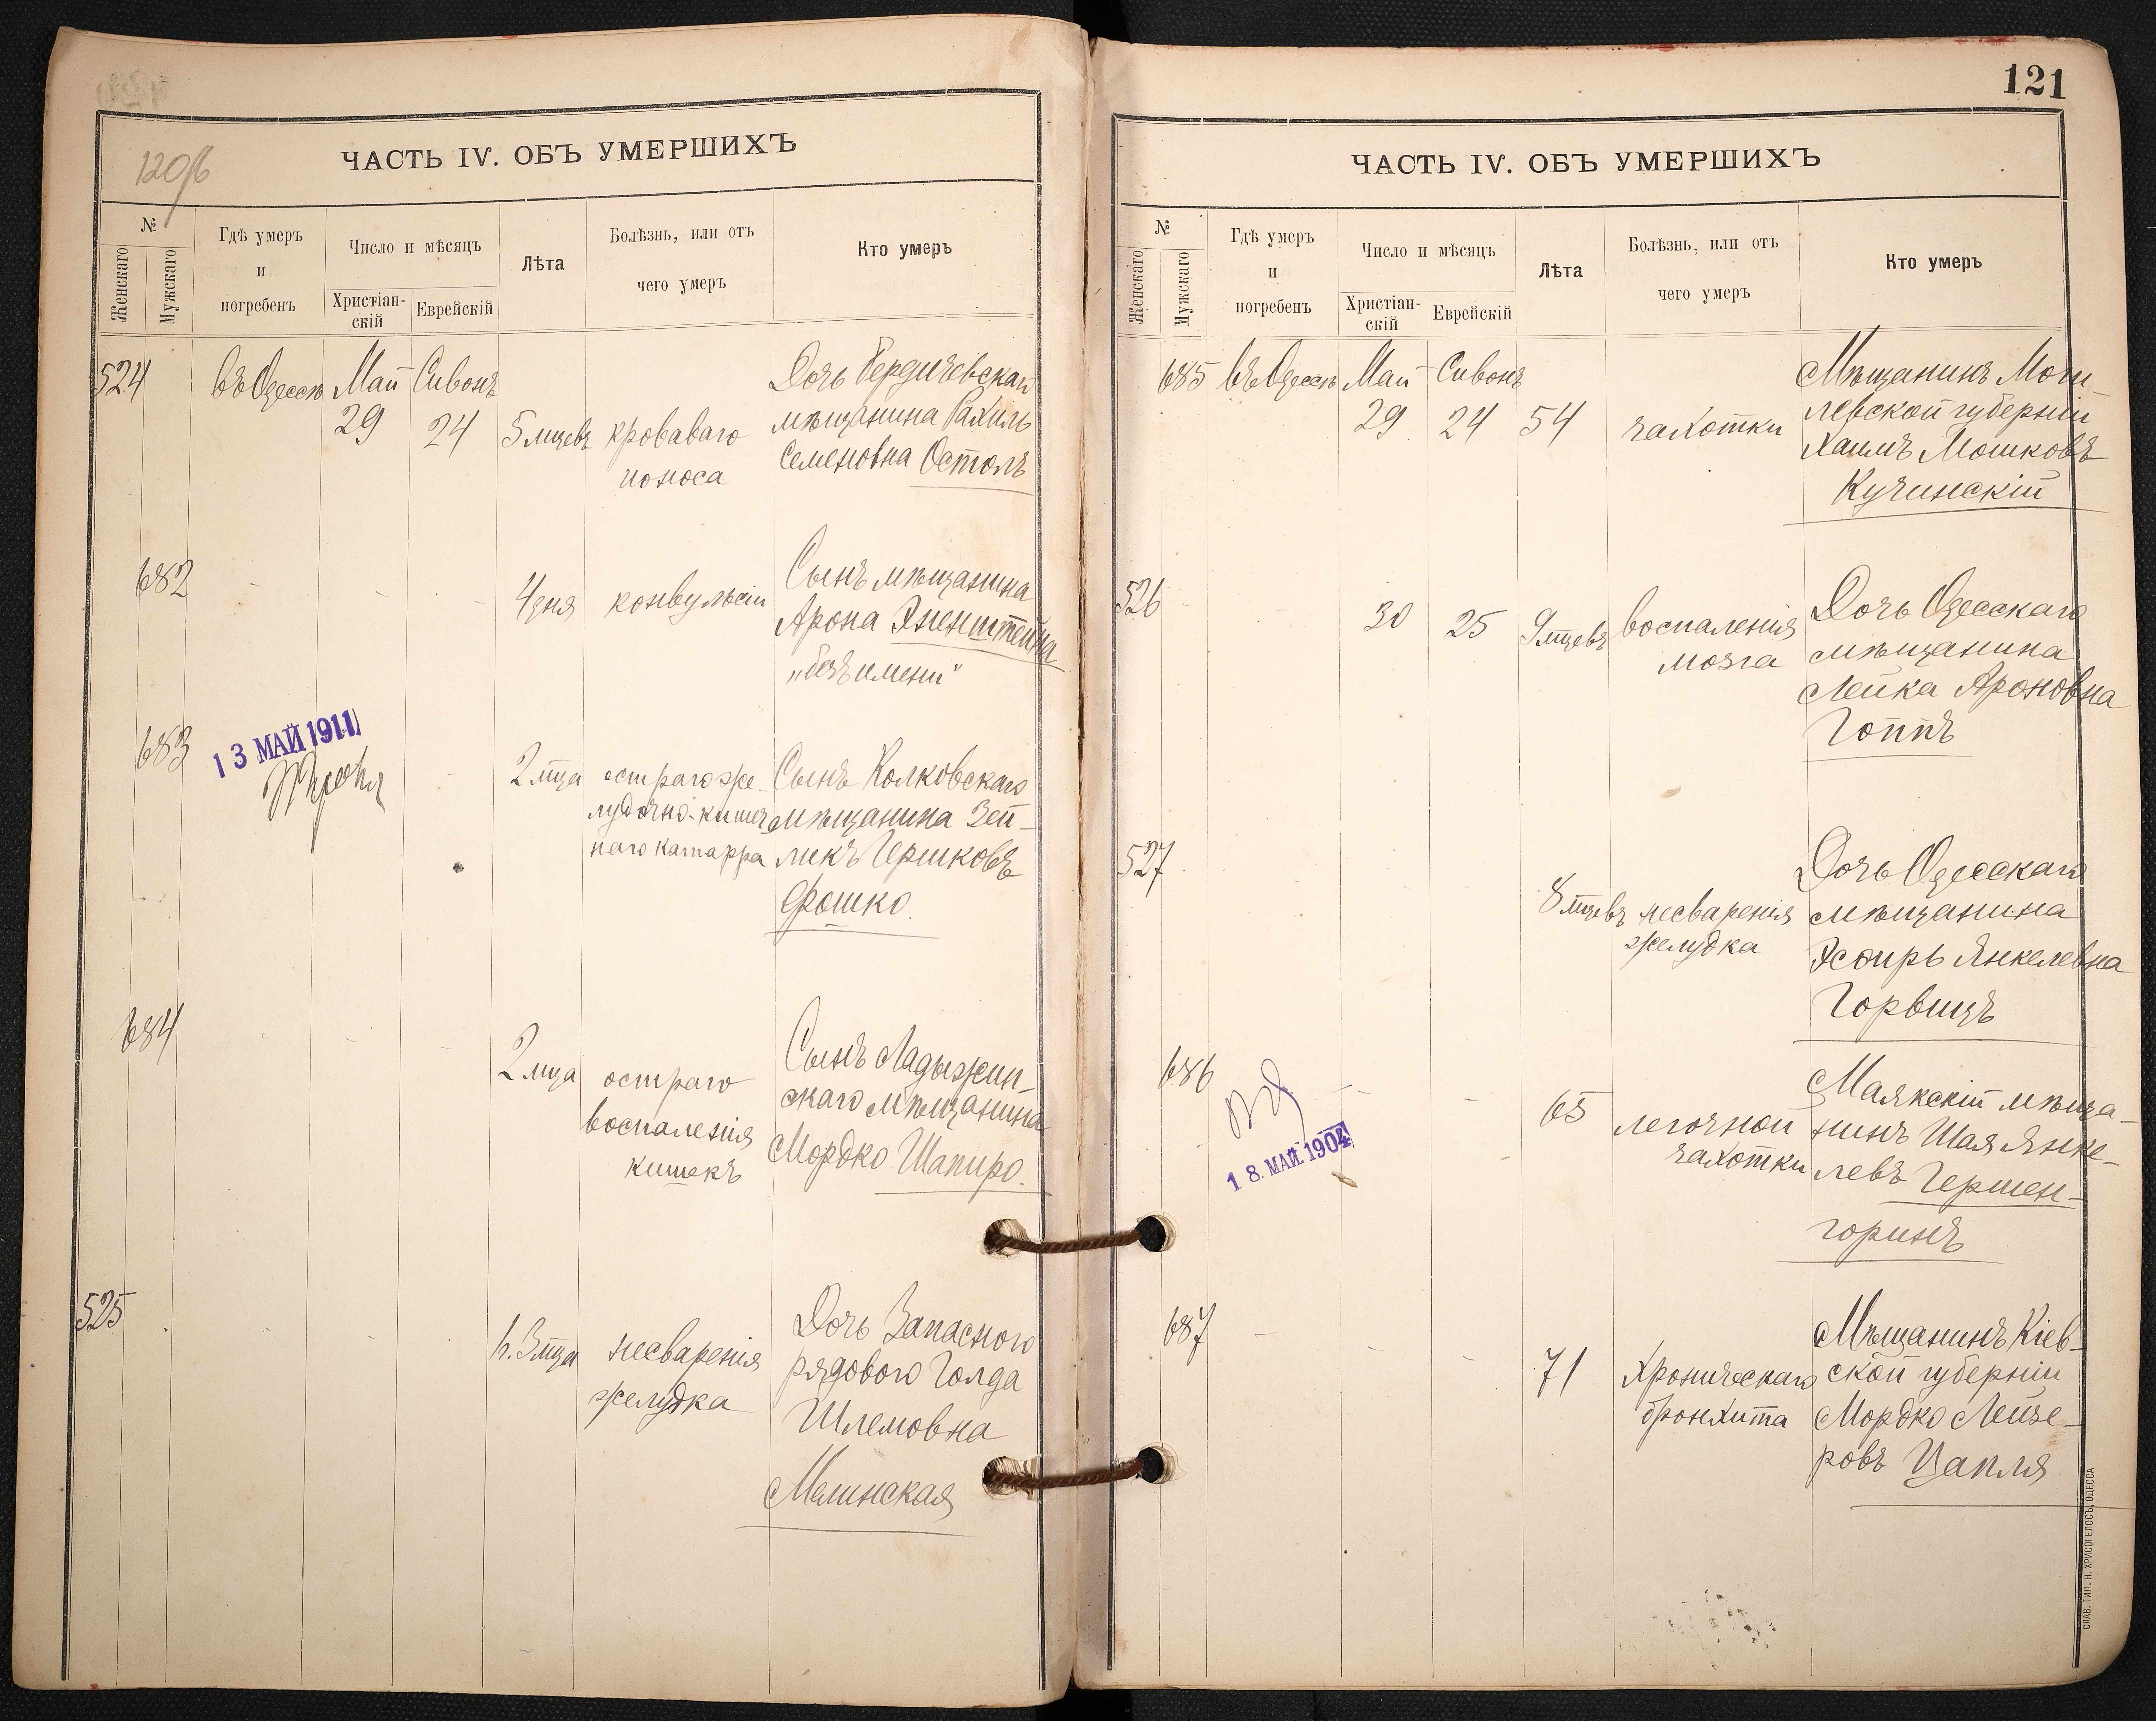 120 об
ЧАСТЬ IV. ОБЪ УМЕРШИХЪ
№
Женскаго
Мужскаго
Гдѣ умеръ
и
погребенъ
Число и мѣсяцъ
Христіан-
скій
Еврейскій
Лѣта
Болѣзнь, или отъ
чего умеръ
Кто умеръ
524 въ Одессѣ Май Сивонъ
29 24 5 мцевъ
кроваваго
поноса
Дочь Бердичевскаго
мѣщанина Рахиль
Семеновна Остолъ
682
4 дня
конвульсіи
Сынъ мѣщанина
Арона Эпенштейна
"безъ имени"
683
13 МАЙ 1911
2 мца
остраго же-
лудочно-кишеч
наго катарра
Сынъ Колковскаго
мѣщанина Зей-
ликъ Гершковъ
Фошко
684
2 мца
остраго
воспаленія
кишекъ
Сынъ Ладыжин-
скаго мѣщанина
Мордко Шапиро.
525
3 мца
несваренія
желудка
Дочь Запасного
рядового Голда
Шлемовна
Малинская
121
ЧАСТЬ IV. ОБЪ УМЕРШИХЪ
№
Женскаго
Мужскаго
Гдѣ умеръ
и
погребенъ
Число и мѣсяцъ
Христіан-
скій
Еврейскій
Лѣта
Болѣзнь, или отъ
чего умеръ
Кто умеръ
685 въ Одессѣ Май Сивонъ
29 24 54
чахотки
Мѣщанинъ Моги
левской губерніи
Хаимъ Мошковъ
Кучинскій
526
30 25 9 мцевъ
воспаленія
мозга
Дочь Одесскаго
мѣщанина
Лейка Ароновна
Гоппъ
527
8 мцевъ
несваренія
желудка
Дочь Одесскаго
мѣщанина
Эсѳирь Янкелевна
Горвицъ
686
18. МАЙ. 1904
65
легочной
чахотки
Маякскій мѣща-
нинъ Шая Янке-
левъ Гершен-
горинъ
687
71
Хроническаго
бронхита
Мѣщанинъ Кіев-
ской губерніи
Мордко Лейзе-
ровъ Цапля
СЛАВ. ТИП. Н. ХРИСОГЕЛОСЪ, ОДЕССА